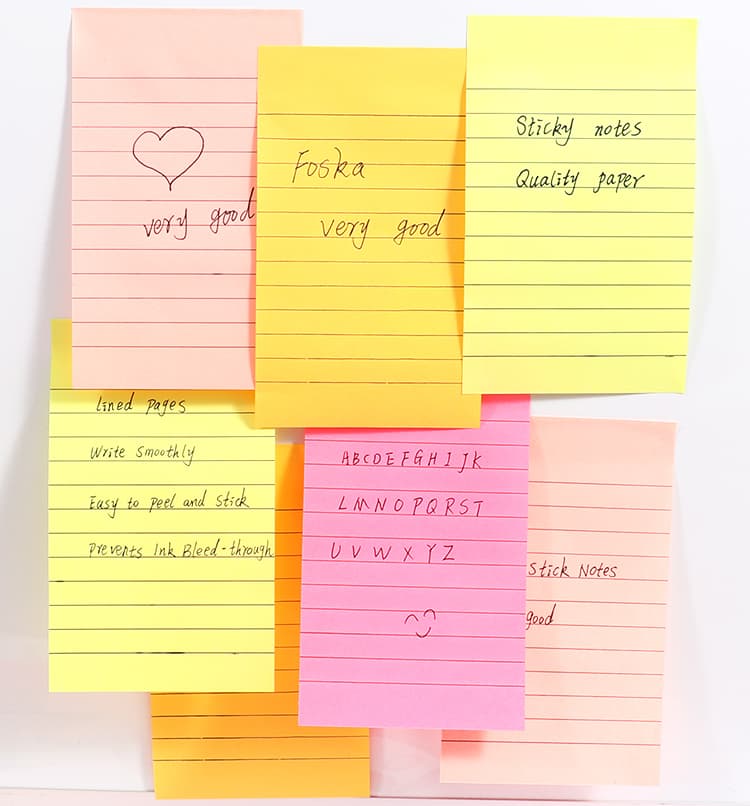 very good
Foska
very good
Sticky notes
Quality paper
Lined pages
Write Smoothly
Easy to peel and Stick
Prevents Ink Bleed-through
ABCDEFGHIJK
LMNOPQRST
UVWXYZ
Stick Notes
good